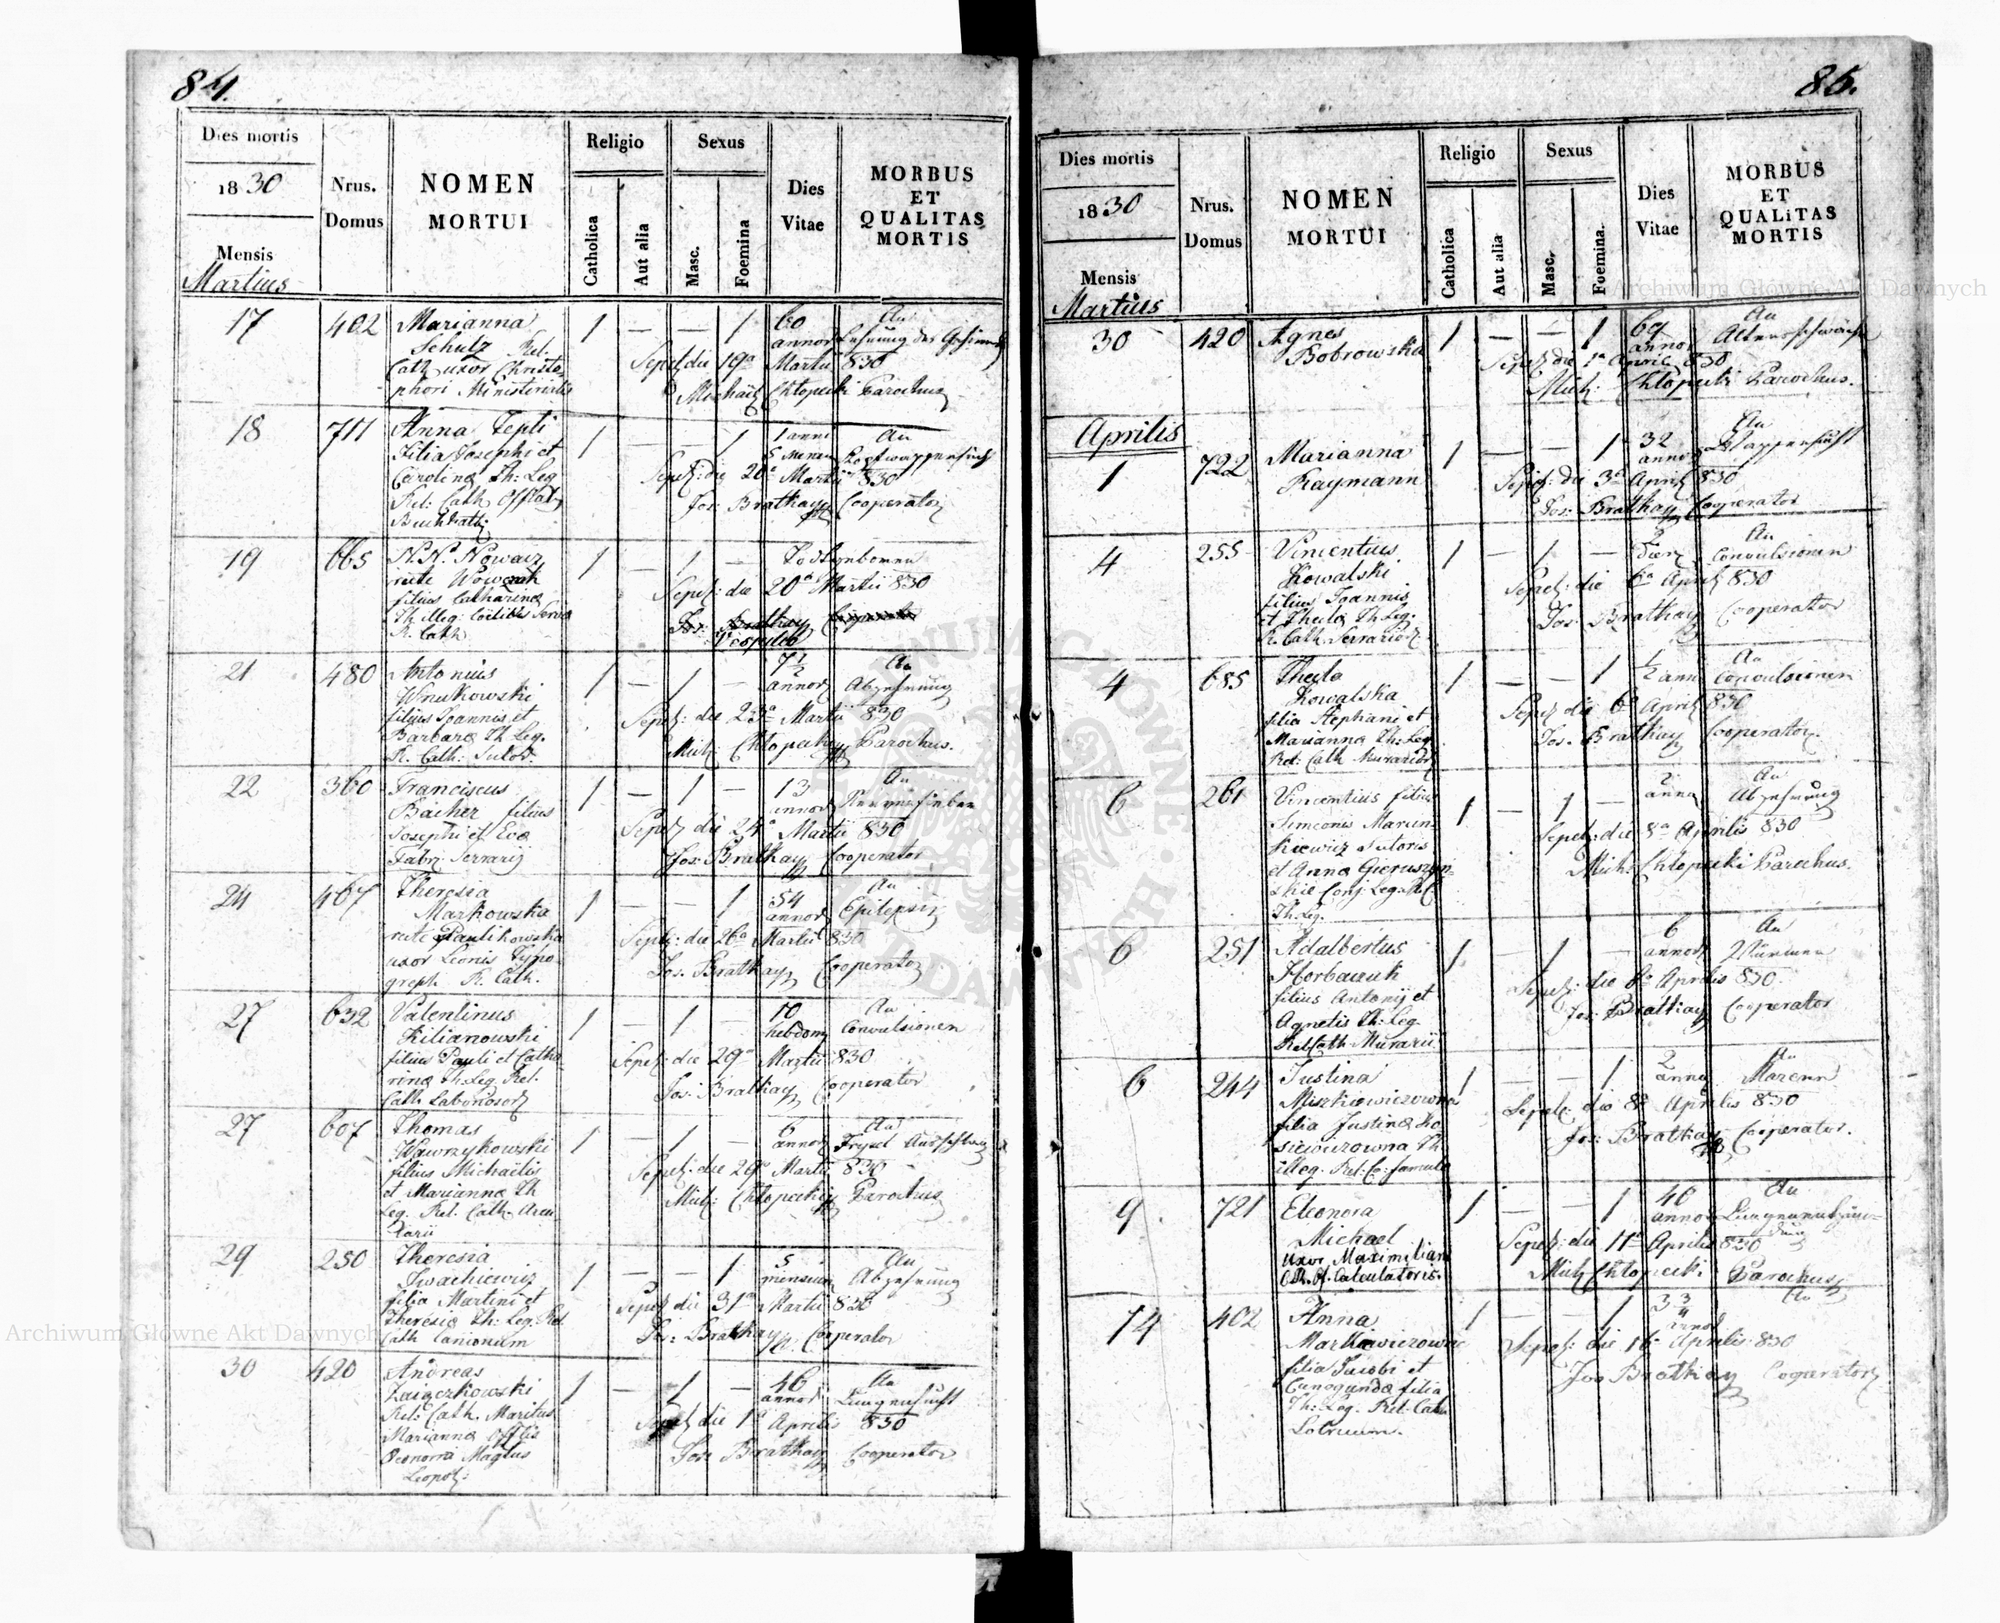 84.
Dies mortis
1830
Mensis
Martius
Nrus.
Domus
NOMEN
MORTUI
Religio
Catholica
Aut alia
Sexus
Masc.
Foemina
Dies
Vitae
MORBUS
ET
QUALITAS
MORTIS
17 402 Marianna 1 — — 1 60 An
Schulz Rel. annor
Cath uxor Christo- Sepel: die 19a Martii 830
phori Ministerialis Michaël Chlopecki Parochus
18 711 Anna Tepli 1 — — 1 1 anni An
Filia Josephi et 5 Mensu
Carolina Th: Leg Sepel: die 20a Martii 830
Rel: Cath Jos: Brathay Cooperator
19 665 N. N. Nowacz 1 — 1 — Todtgebornen
recte Sepel: die 20a Martii 830
filius Catharina
Th illeg: Jos: Brathay
R. Cath
21 480 Antonius 1 — 1 — 7 1/2 An
Wnukowski annor Abzehrung
filius Joannis et Sepel: die 23a Martii 830
Barbara Th Leg. Mich: Chlopecki Parochus.
R. Cath: Sutor.
22 360 Franciscus 1 — 1 — 13 An
Bacher filius annor Nervenfieber
Josephi et Eva Sepel die 24a Martii 830
Fabri Serrarij Jos: Brathay Cooperator
24 467 Theresia 1 — — 1 54 An
Markowska annor Epilepsie
recte Paulikowska Sepel: die 26a Martii 830
uxor Leonis Typo- Jos. Brathay Cooperator
graph R. Cath.
27 632 Valentinus 1 — 1 — 10 An
Kilianowski hebdom Convulsionen
filius Pauli et Catha- Sepel: die 29a Martii 830
rina Th: Leg. Rel. Jos: Brathay Cooperator
Cath Laborator
27 607 Thomas 1 — 1 — 6 An
Wawrzykowski annor
filius Michaëlis Sepel: die 29a Martii 830
et Marianna Th Mich: Chlopecki Parochus
Leg. Rel. Cath.
29 250 Theresia 1 — — 1 5 An
Iwachiewicz mensium Abzehrung
filia Martini et Sepel die 31a Martii 830
Theresia Th: Leg. Rel Jos: Brathay Cooperator
Cath Lanionum
30 420 Andreas 1 — 1 — 46 An
Zaigczkowski annor Lungensucht
Rel: Cath. Maritus Sepel die 1a Aprilis 830
Marianna Offlis Jos: Brathay Cooperator
Leopol:
85.
Dies mortis
1830
Mensis
Martius
Nrus.
Domus
NOMEN
MORTUI
Religio
Catholica
Aut alia
Sexus
Masc.
Foemina.
Dies
Vitae
MORBUS
ET
QUALITAS
MORTIS
30 420 Agnes 1 — — 1 69 An
Bobrowska annor Altersschwäche
Sepel die 1a April 830
Mich: Chlopecki Parochus.
Aprilis
1 722 Marianna 1 — — 1 32 An
Raymann annor
Sepel: die 3a April 830
Jos: Brathay Cooperator
4 255 Vincentius 1 — 1 — 2 An
Kowalski dier Convulsionen
filius Joannis Sepel: die 6a April 830
et Thecla Th Leg: Jos: Brathay Cooperator
R. Cath. Serrarior
4 685 Thecla 1 — — 1 1/2 ann An
Kowalska Convulsionen
filia Stephani et Sepel die 6a April 830
Marianna Th: Leg. Jos. Brathay Cooperator.
Rel: Cath Murarior
6 261 Vincentius filius 1 — 1 — 2 An
Simeonis Marcin- anno Abzehrung
kiewicz Sutoris Sepel: die 8a Aprilis 830
et Anna Mich: Chlopecki Parochus.
Conj: Leg.
Th. Leg.
6 251 Adalbertus 1 — 1 — 6 An
Horbaczuk annor Würmern
filius Antonij et Sepel: die 6a Aprilis 830.
Agnetis Th: Leg. Jos: Brathay Cooperator
Rel Cath Murarii
6 244 Justina 1 — — 1 2 An
Miszkiewiczowna anno Masern
filia Justina Ko- Sepel: die 8a Aprilis 830
siewiczowna Th Jos: Brathay Cooperator.
illeg. Rel: Co: famula
9. 721 Eleonora 1 — — 1 40 An
Michael annor Lungenentzün-
dung
uxor Maximiliani Sepel: die 11a Aprilis 830
C. R. Calculatoris. Mich Chlopecki Parochus
14 402 Anna 1 — — 1 3 3/4 An
Markiewiczowna annor
filia Jacobi et Sepel: die 16a Aprilis 830
Cunegunda filia Jos Brathay Cooperator
Th: Leg. Rel. Cath
Archiwum Główne Akt Dawnych
Archiwum Główne Akt Dawnych
ARCHIWUM GŁÓWNE AKT DAWNYCH